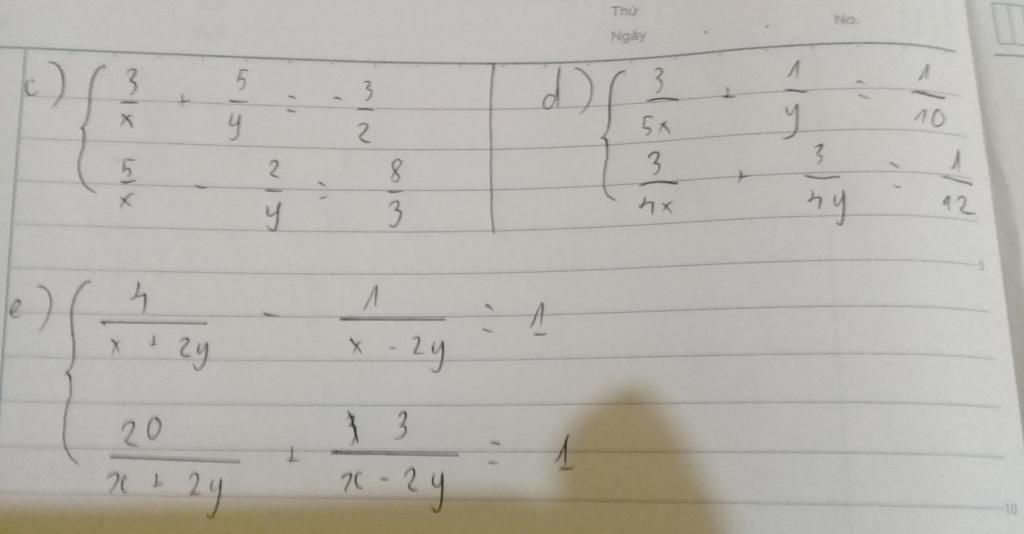 Thứ
Ngày
No.
c) { 3/x + 5/y = - 3/2
5/x - 2/y = 8/3
d) { 3/5x + 1/y = 1/10
3/4x + 3/4y = 1/12
5
e) { 4/(x + 2y) - 1/(x - 2y) = 1
20/(x + 2y) + 3/(x - 2y) = 1
10